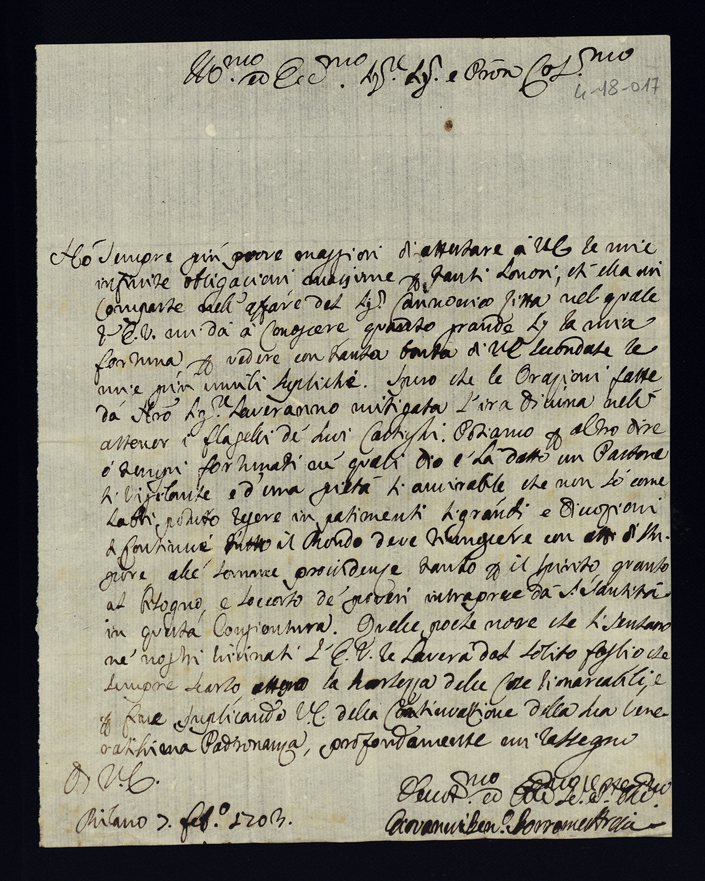 Ill.mo ed Ecc.mo Sig.r Sig. e Pron Col.mo
4-18-017
Hò sempre più prove maggiori di attestare à V.E. le mie
infinite obligationi massime p tanti honori, ch'ella mi
comparte nell'affare del Sig.r Cannonico Vitta nel quale
l'E.V. mi dà à conoscere quanto grande sij la mia
fortuna p vedere con tanta bontà di V.E. secondate le
mie più umili supliche. Spero che le Orazioni fatte
da N'ro Sig.re haveranno mitigata l'ira divina nell'
attener i flagelli de suoi Castighi. Potiamo p altro dire
ò tempi fortunati ne quali Dio ci hà datto un Pastore
si vigilante e d'una pietà si amirabile che non sò come
habbi potuto regere in patimenti si grandi e divozioni
si continue tutto il Mondo deve riconoscere con
alle somme providenze tanto p il spirito quanto
al bisogno, e soccorso de poveri intraprese dà S. Santità
in questa Congiontura. Quelle poche nove che si sentano
ne nostri vicinati l'E.V. le haverà dal solito foglio che
sempre scarto la hartezza delle Cose rimarcabili, e
p fine suplicando V.E. della Continuatione della sua vene-
ratissima Padronanza, profondamente mi rassegno
Di V.E.
Milano 7. feb.o 1703.
Devot.mo ed
Giovanni Ben.o Borromeo Arese